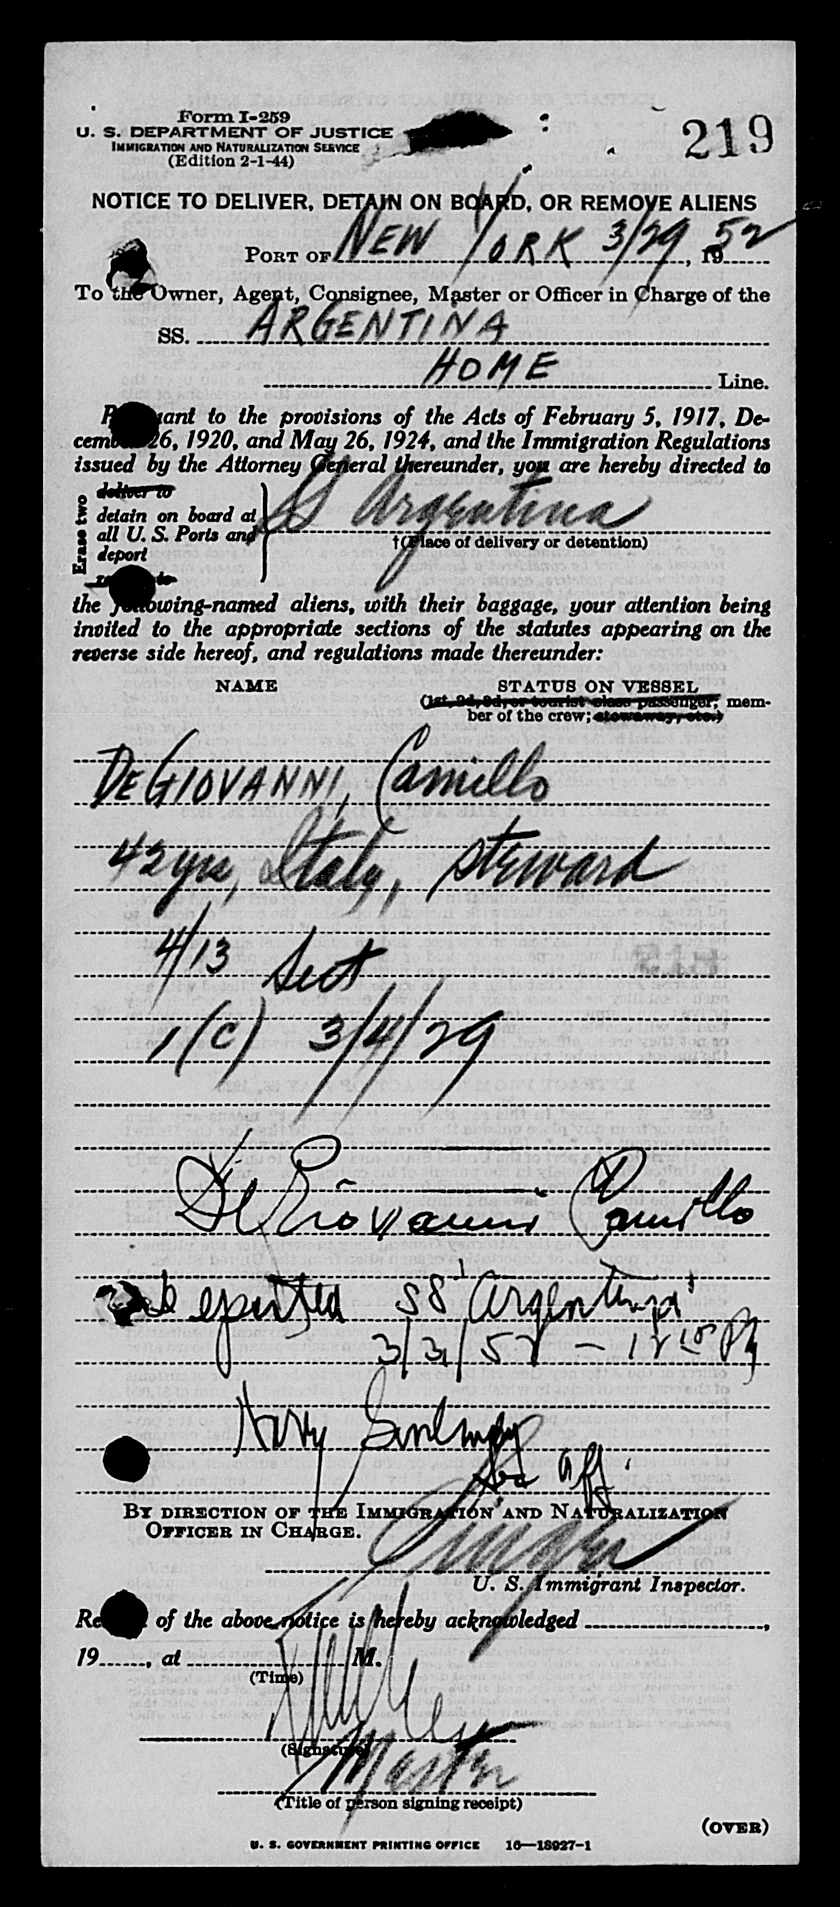 Form I-259
U. S. DEPARTMENT OF JUSTICE
IMMIGRATION AND NATURALIZATION SERVICE
(Edition 2-1-44)
219
NOTICE TO DELIVER, DETAIN ON BOARD, OR REMOVE ALIENS
PORT OF NEW YORK 3/29, 1952
To the Owner, Agent, Consignee, Master or Officer in Charge of the
SS. ARGENTINA
HOME Line.
Pursuant to the provisions of the Acts of February 5, 1917, De-
cember 26, 1920, and May 26, 1924, and the Immigration Regulations
issued by the Attorney General thereunder, you are hereby directed to
Erase two
deliver to
detain on board at
all U. S. Ports and
deport
SS Argentina
†(Place of delivery or detention)
the following-named aliens, with their baggage, your attention being
invited to the appropriate sections of the statutes appearing on the
reverse side hereof, and regulations made thereunder:
NAME STATUS ON VESSEL
(1st, 2d, 3d, or tourist class passenger; mem-
ber of the crew; stowaway, etc.)
DEGIOVANNI, Camillo
42 yrs, Italy, steward
4/13 Sect
1(C) 3/4/29
De Giovanni Camillo
Deported SS "Argentina"
3/31/52 - 12 10 PM
Harry
By DIRECTION OF THE IMMIGRATION AND NATURALIZATION
OFFICER IN CHARGE.
U. S. Immigrant Inspector.
Receipt of the above notice is hereby acknowledged ,
19 , at M.
(Time)
(Signature)
Master
(Title of person signing receipt)
(OVER)
U. S. GOVERNMENT PRINTING OFFICE 16—18927-1